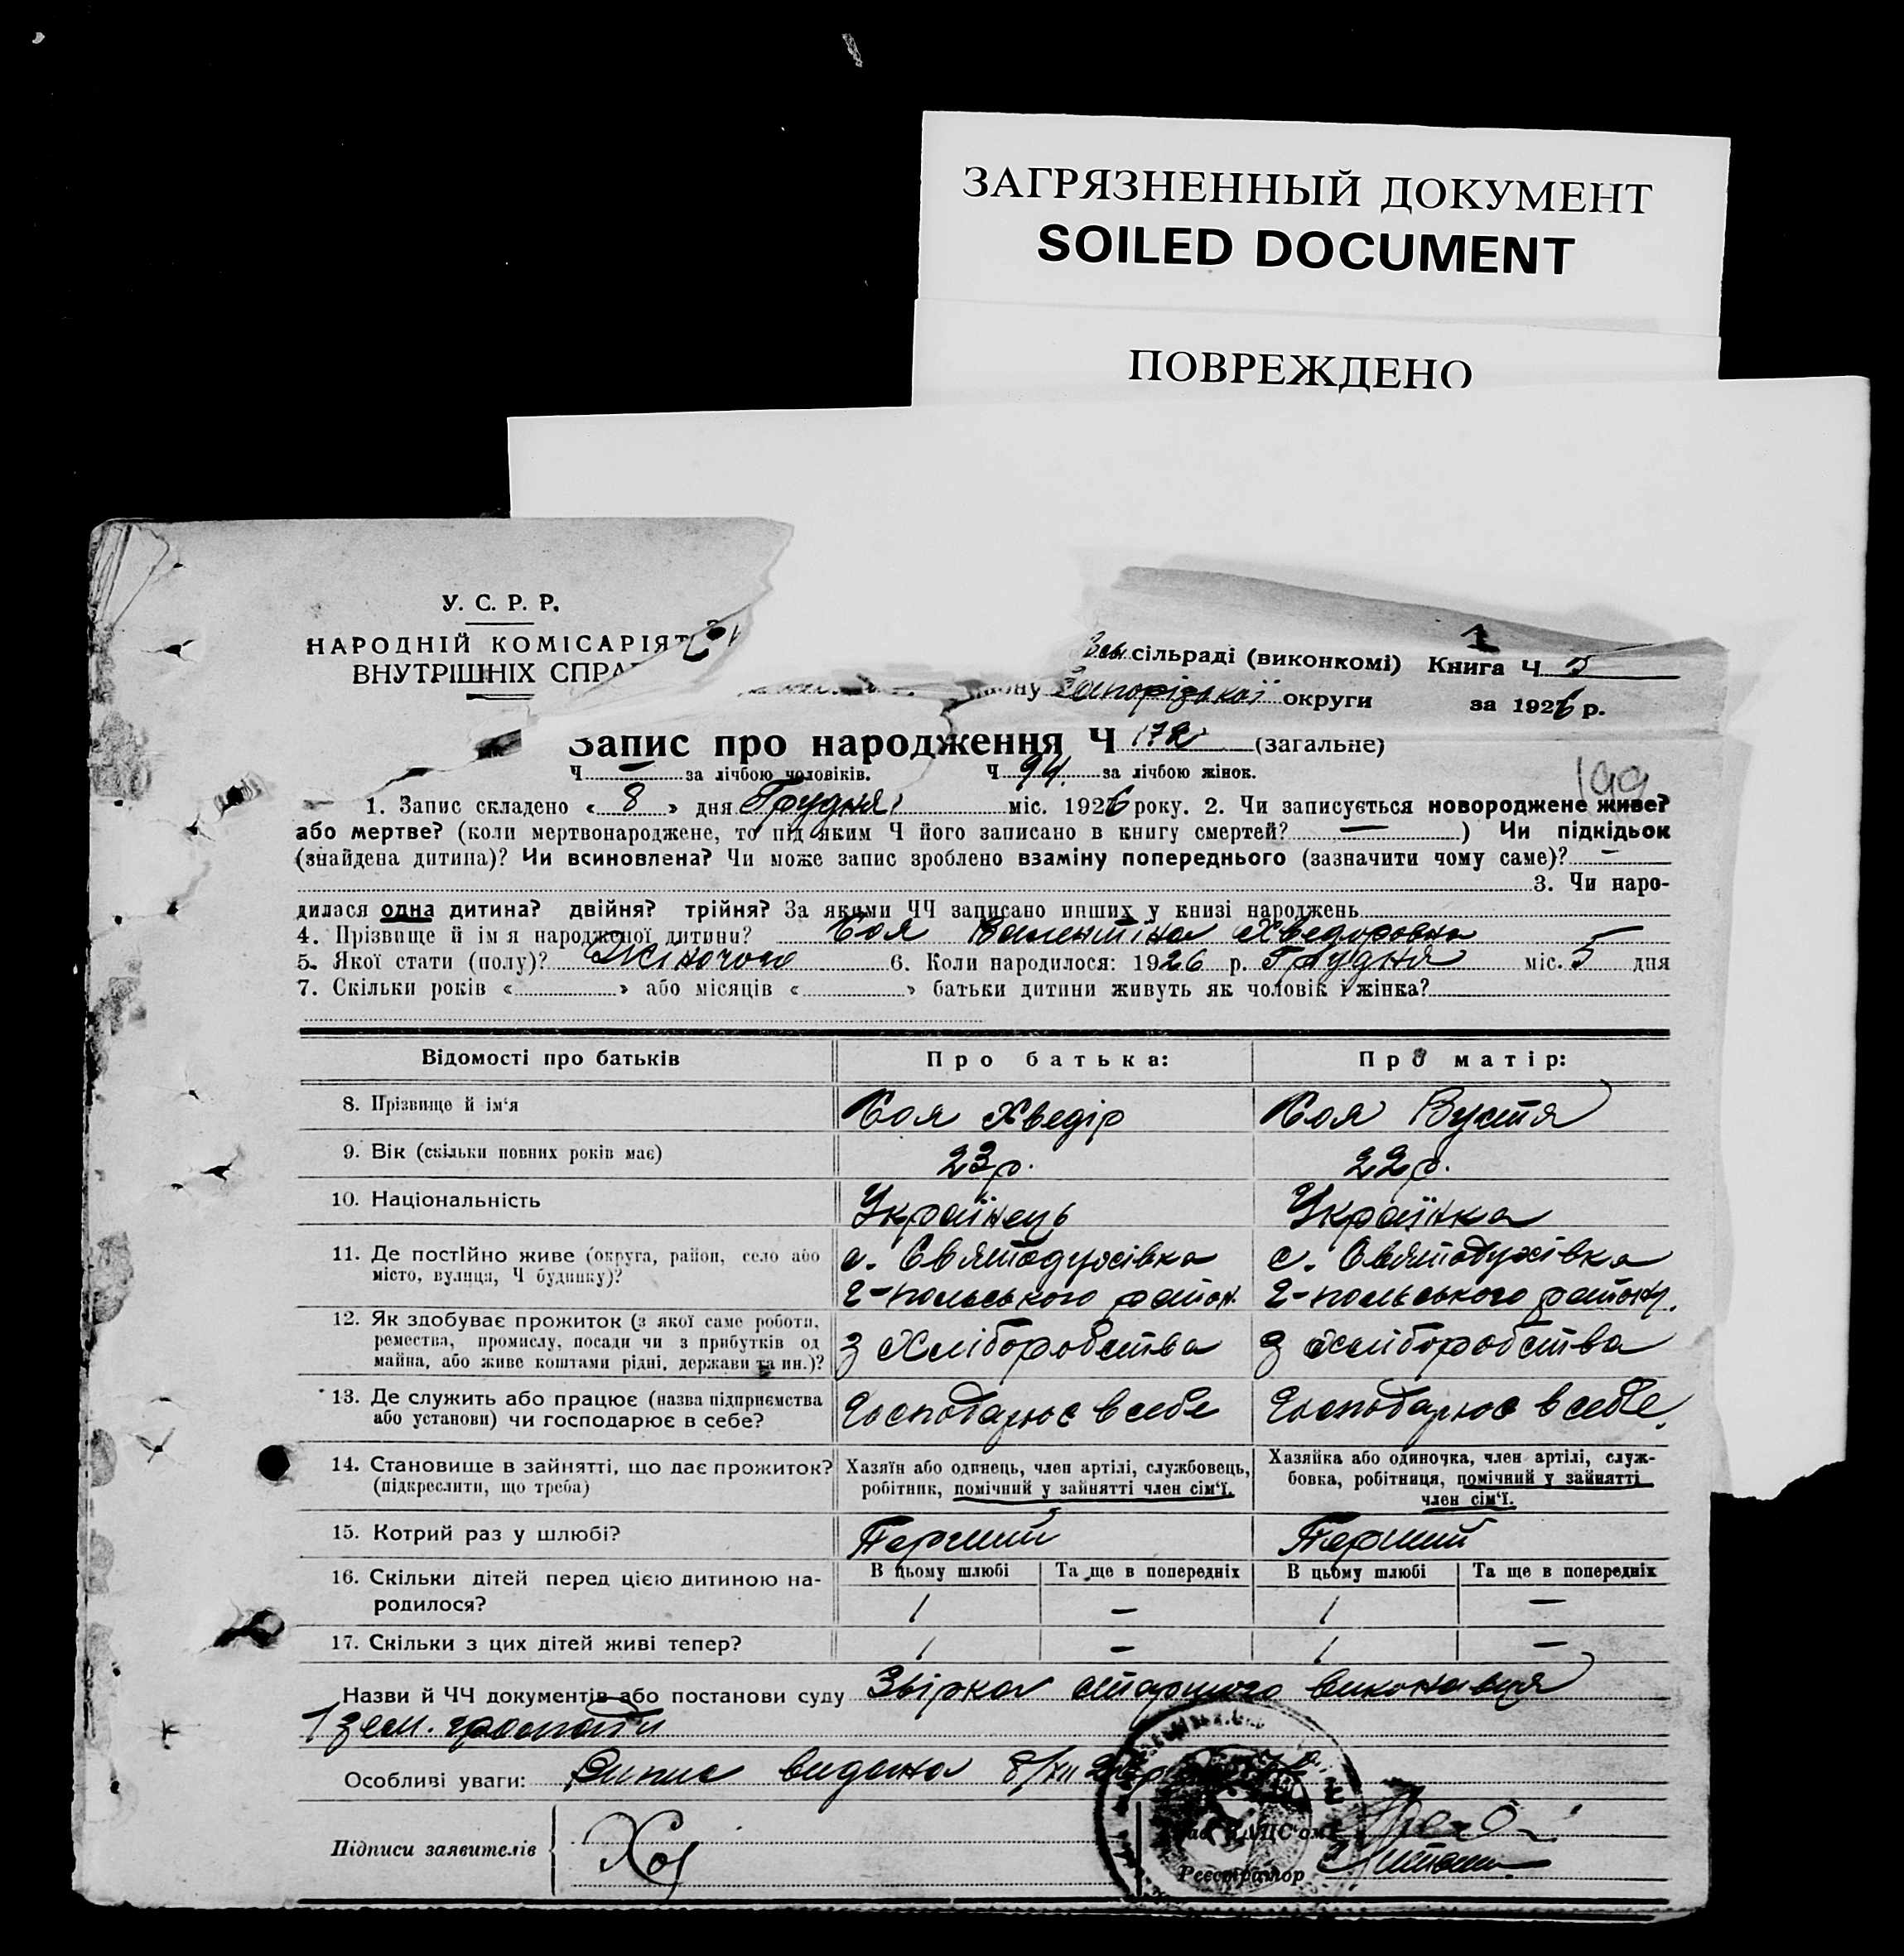 ЗАГРЯЗНЕННЫЙ ДОКУМЕНТ
SOILED DOCUMENT
ПОВРЕЖДЕНО
У. С. Р. Р.
НАРОДНІЙ КОМІСАРІЯТ
ВНУТРІШНІХ СПРА
сільраді (виконкомі) Книга Ч
1
Запорізької округи за 1926 р.
Запис про народження Ч 172 (загальне)
Ч — за лічбою чоловіків. Ч 94 за лічбою жінок.
199
1. Запис складено « 8 » дня Грудня міс. 1926 року. 2. Чи записується новороджене живе?
або мертве? (коли мертвонароджене, то під яким Ч його записано в книгу смертей? — ) Чи підкідьок
(знайдена дитина)? Чи всиновлена? Чи може запис зроблено взаміну попереднього (зазначити чому саме)? —
3. Чи наро-
дилася одна дитина? двійня? трійня? За якими ЧЧ записано инших у книзі народжень
4. Прізвище й ім я народженої дитини? Коя Валентіна Хведоровна
5. Якої стати (полу)? Жіночого 6. Коли народилося: 1926 р. Грудня міс. 5 дня
7. Скільки років « » або місяців « » батьки дитини живуть як чоловік і жінка?
Відомості про батьків Про батька: Про матір:
8. Прізвище й ім'я Коя Хведір Коя Вустя
9. Вік (скільки повних років має) 23 р. 22 р.
10. Національність Українець Українка
11. Де постійно живе (округа, район, село або с. Святодухівка с. Святодухівка
місто, вулиця, Ч будинку)? Г-польського район. Г-польського району.
12. Як здобуває прожиток (з якої саме роботи,
ремества, промислу, посади чи з прибутків од з Хліборобства з Хліборобства
майна, або живе коштами рідні, держави та ин.)?
13. Де служить або працює (назва підприємства Господарює в себе Господарює в себе.
або установи) чи господарює в себе?
14. Становище в зайнятті, що дає прожиток? Хазяїн або одинець, член артілі, службовець, Хазяйка або одиночка, член артілі, служ-
(підкреслити, що треба) робітник, помічний у зайнятті член сім'ї. бовка, робітниця, помічний у зайнятті
член сім'ї.
15. Котрий раз у шлюбі? Перший Перший
16. Скільки дітей перед цією дитиною на- В цьому шлюбі Та ще в попередніх В цьому шлюбі Та ще в попередніх
родилося? 1 — 1 —
17. Скільки з цих дітей живі тепер? 1 — 1 —
Назви й ЧЧ документів або постанови суду Звірка старшого виконавця
1 зем. громади
Особливі уваги: Випис видана 8/XII 26 р.
Підписи заявителів Коя
Реєстратор